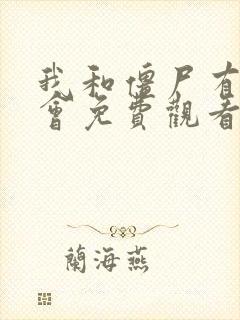 我和僵尸有
會免費觀看
蘭海燕